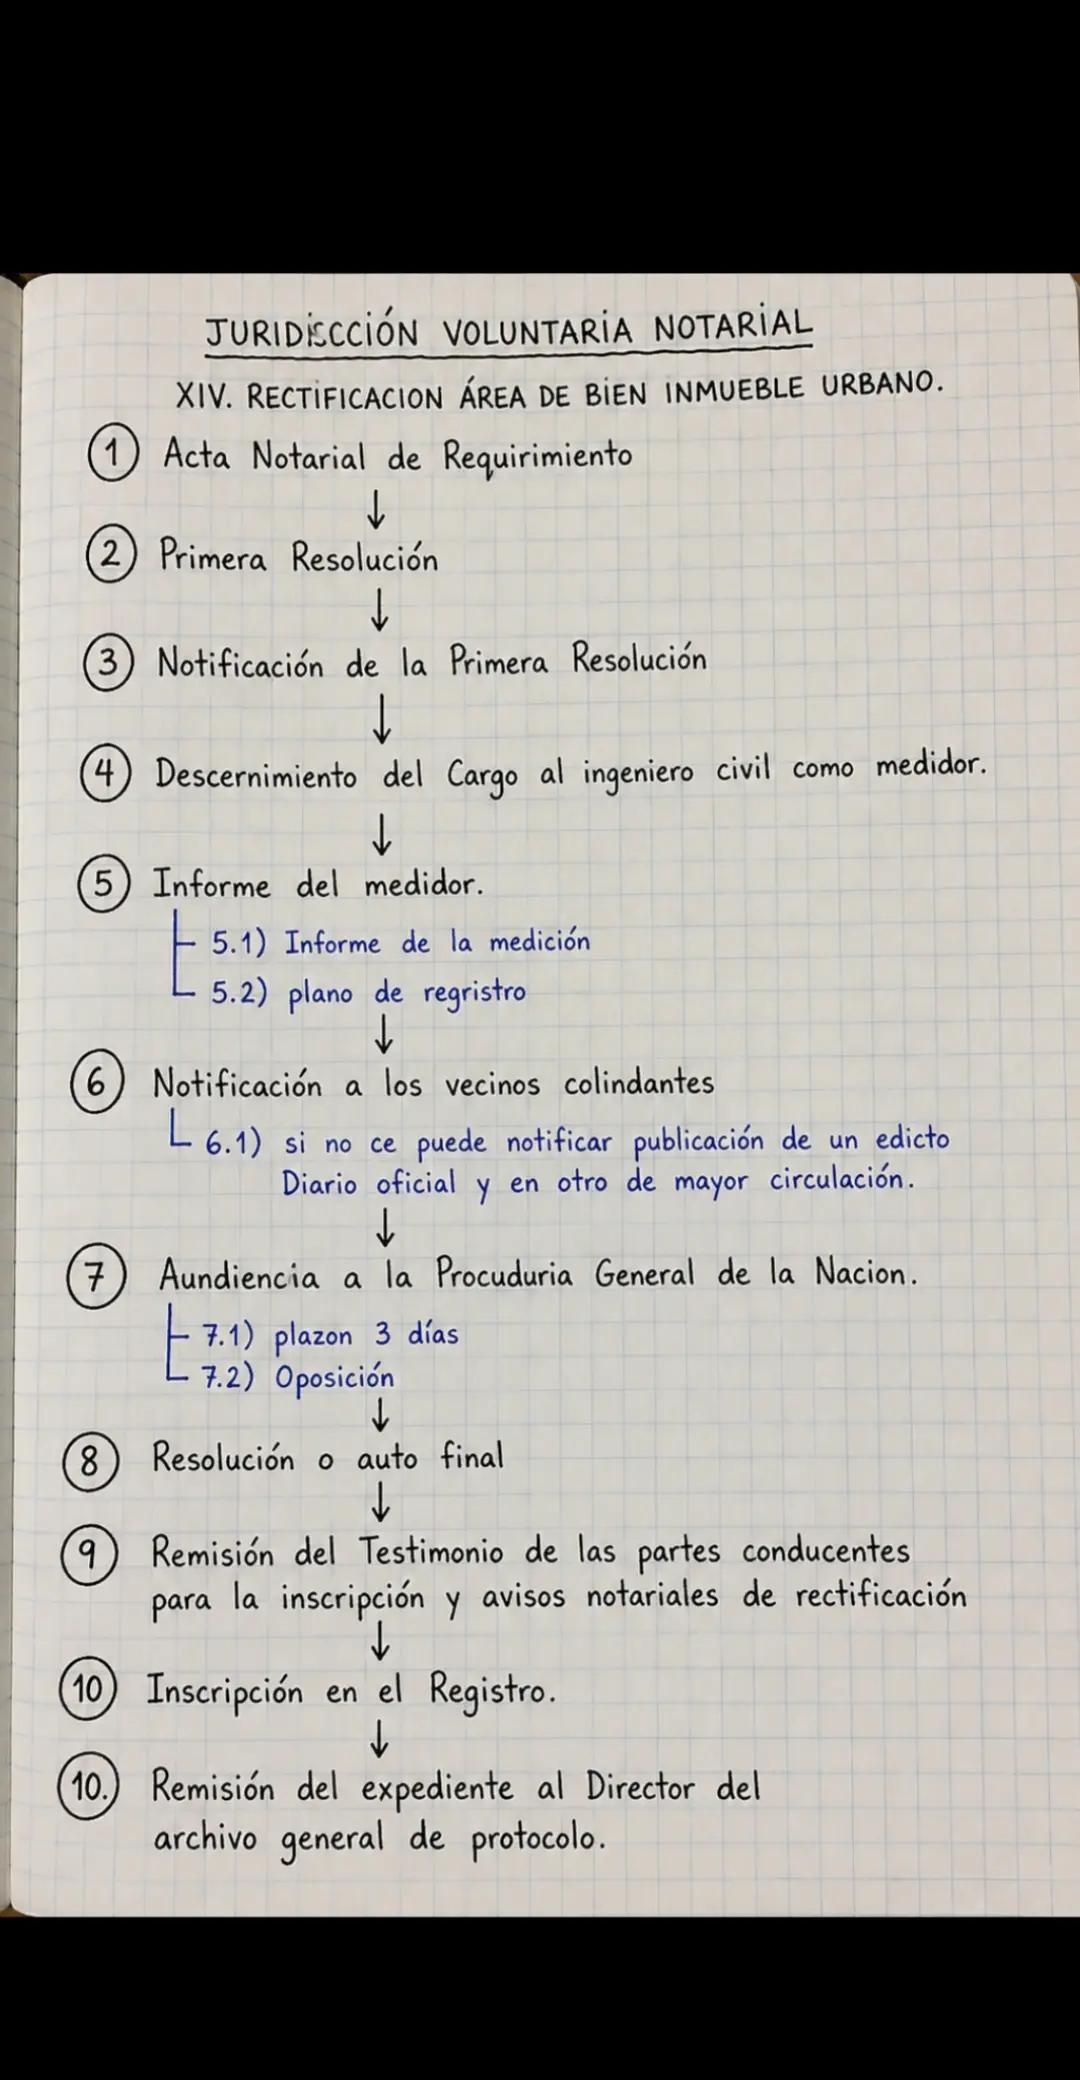 JURIDISCCIÓN VOLUNTARIA NOTARIAL
XIV. RECTIFICACION ÁREA DE BIEN INMUEBLE URBANO.
1 Acta Notarial de Requirimiento
↓
2 Primera Resolución
↓
3 Notificación de la Primera Resolución
↓
4 Descernimiento del Cargo al ingeniero civil como medidor.
↓
5 Informe del medidor.
5.1) Informe de la medición
5.2) plano de regristro
↓
6 Notificación a los vecinos colindantes
6.1) si no ce puede notificar publicación de un edicto
Diario oficial y en otro de mayor circulación.
↓
7 Aundiencia a la Procuduria General de la Nacion.
7.1) plazon 3 días
7.2) Oposición
↓
8 Resolución o auto final
↓
9 Remisión del Testimonio de las partes conducentes
para la inscripción y avisos notariales de rectificación
↓
10 Inscripción en el Registro.
↓
10. Remisión del expediente al Director del
archivo general de protocolo.